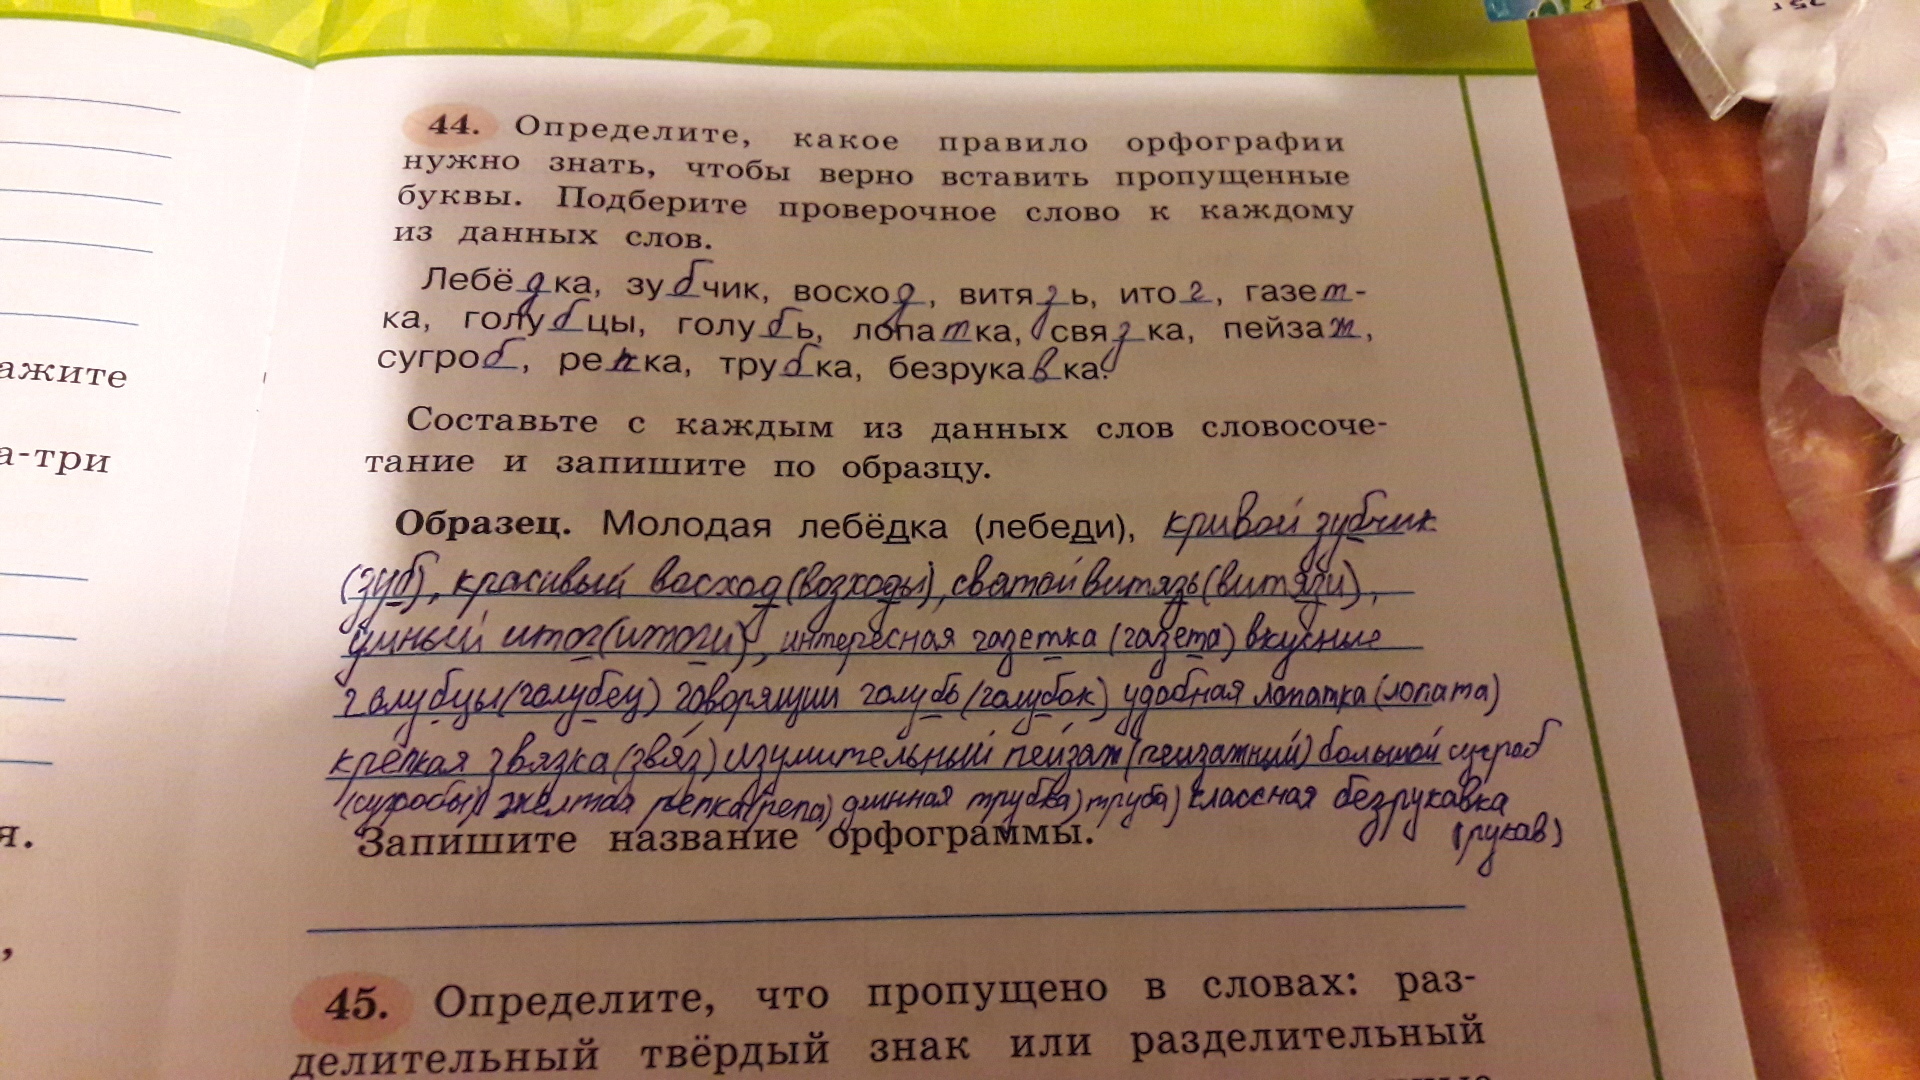 44. Определите, какое правило орфографии
нужно знать, чтобы верно вставить пропущенные
буквы. Подберите проверочное слово к каждому
из данных слов.
Лебёдка, зубчик, восход, витязь, итог, газет-
ка, голубцы, голубь, лопатка, связка, пейзаж,
сугроб, репка, трубка, безрукавка.
Составьте с каждым из данных слов словосоче-
тание и запишите по образцу.
Образец. Молодая лебёдка (лебеди), кривой зубчик
(зуб), красивый восход (возходы), сватой витязь (витязи),
умный итог (итоги), интересная газетка (газета) вкусные
голубцы (голубец) говорящий голубь (голубок) удобная лопатка (лопата)
крепкая звязка (звяз) изумительный пейзаж (пейзажний) большой сугроб
(сугробы) желтая репка (репа) длинная трубка) труба) классная безрукавка
(рукав)
Запишите название орфограммы.
45. Определите, что пропущено в словах: раз-
делительный твёрдый знак или разделительный
ажите
а-три
я.
,